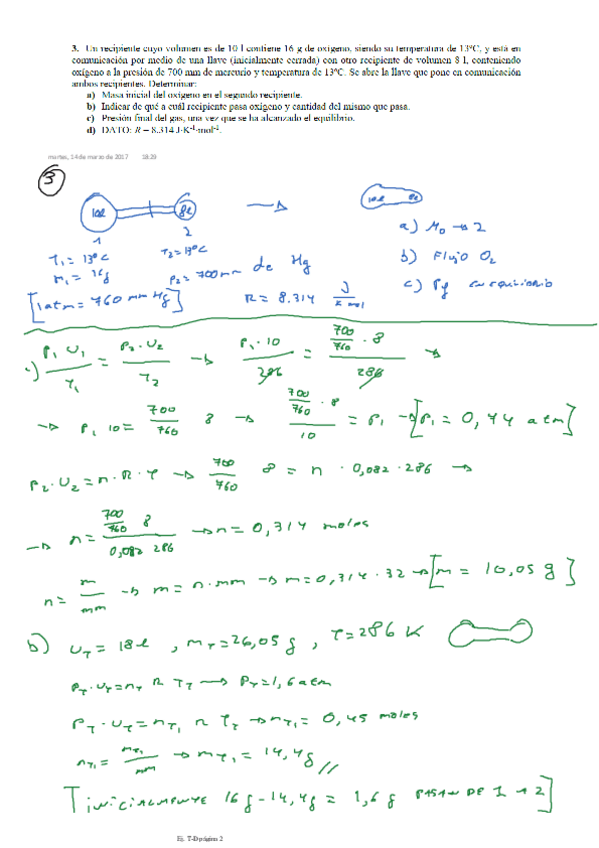 3. Un recipiente cuyo volumen es de 10 l contiene 16 g de oxígeno, siendo su temperatura de 13ºC, y está en
comunicación por medio de una llave (inicialmente cerrada) con otro recipiente de volumen 8 l, conteniendo
oxígeno a la presión de 700 mm de mercurio y temperatura de 13ºC. Se abre la llave que pone en comunicación
ambos recipientes. Determinar:
a) Masa inicial del oxígeno en el segundo recipiente.
b) Indicar de qué a cuál recipiente pasa oxígeno y cantidad del mismo que pasa.
c) Presión final del gas, una vez que se ha alcanzado el equilibrio.
d) DATO: R = 8.314 J·K⁻¹·mol⁻¹.
martes, 14 de marzo de 2017 18:29
3
10l 8l → 10l 8l
1 2
a) M₀ → 2
T₁ = 13ºC T₂ = 13ºC
b) Flujo O₂
m₁ = 16g P₂ = 700mm de Hg
c) Pf en equilibrio
[1atm = 760 mm Hg] R = 8.314 J/K mol
P₁·V₁/T₁ = P₂·V₂/T₂ → P₁·10/286 = 700/760·8/286 →
→ P₁ 10 = 700/760 8 → 700/760·8/10 = P₁ → [P₁ = 0,74 atm]
P₂·V₂ = n·R·T → 700/760 8 = n · 0,082 · 286 →
→ n = 700/760 8/0,082 286 → n = 0,314 moles
n = m/mm → m = n·mm → m = 0,314 · 32 → [m = 10,05 g]
b) V_T = 18l , m_T = 26,05 g , T = 286 K
P_T·V_T = n_T R T_T → P_T = 1,6 atm
P_T·V_T = n_T₁ R T_T → n_T₁ = 0,45 moles
n_T₁ = m_T₁/mm → m_T₁ = 14,4g //
[INICIALMENTE 16g - 14,4g = 1,6 g PASAN DE 1 → 2]
Ej. T-D página 2